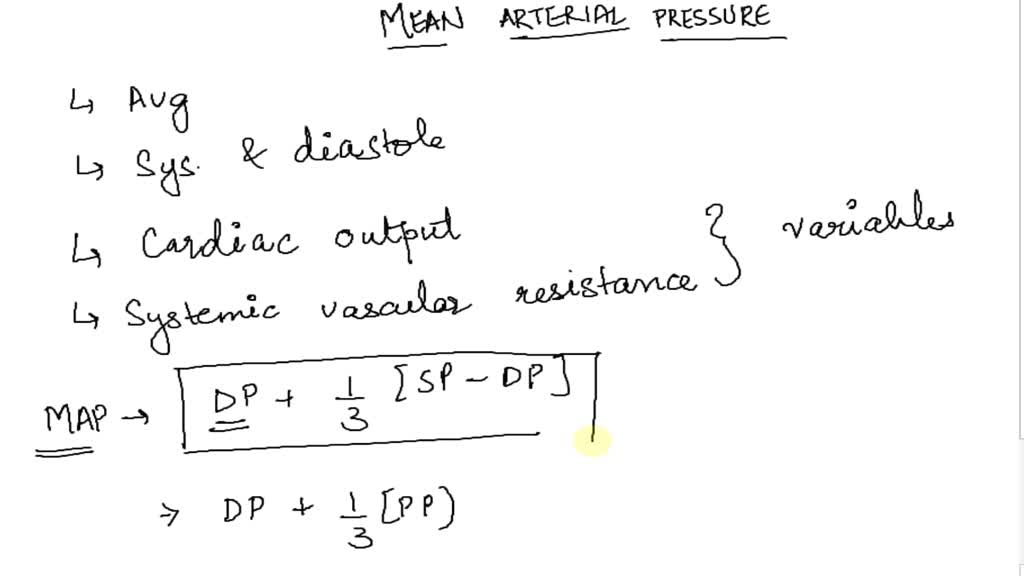 MEAN ARTERIAL PRESSURE
↳ Avg
↳ Sys. & diastole
↳ Cardiac output
↳ Systemic vascular resistance } variables
MAP → DP + 1/3 [SP - DP]
⇒ DP + 1/3 [PP)